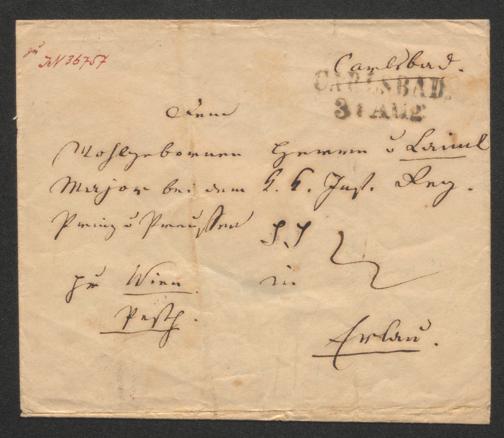 zu
IN 36757
Carlsbad.
CARLSBAD.
31 AUG
Dem
Wohlgebornen Herrn v
Major bei dem K. K. Inf. Reg.
Prinz v Preussen
zu Wien in
Pesth.
Erlau.